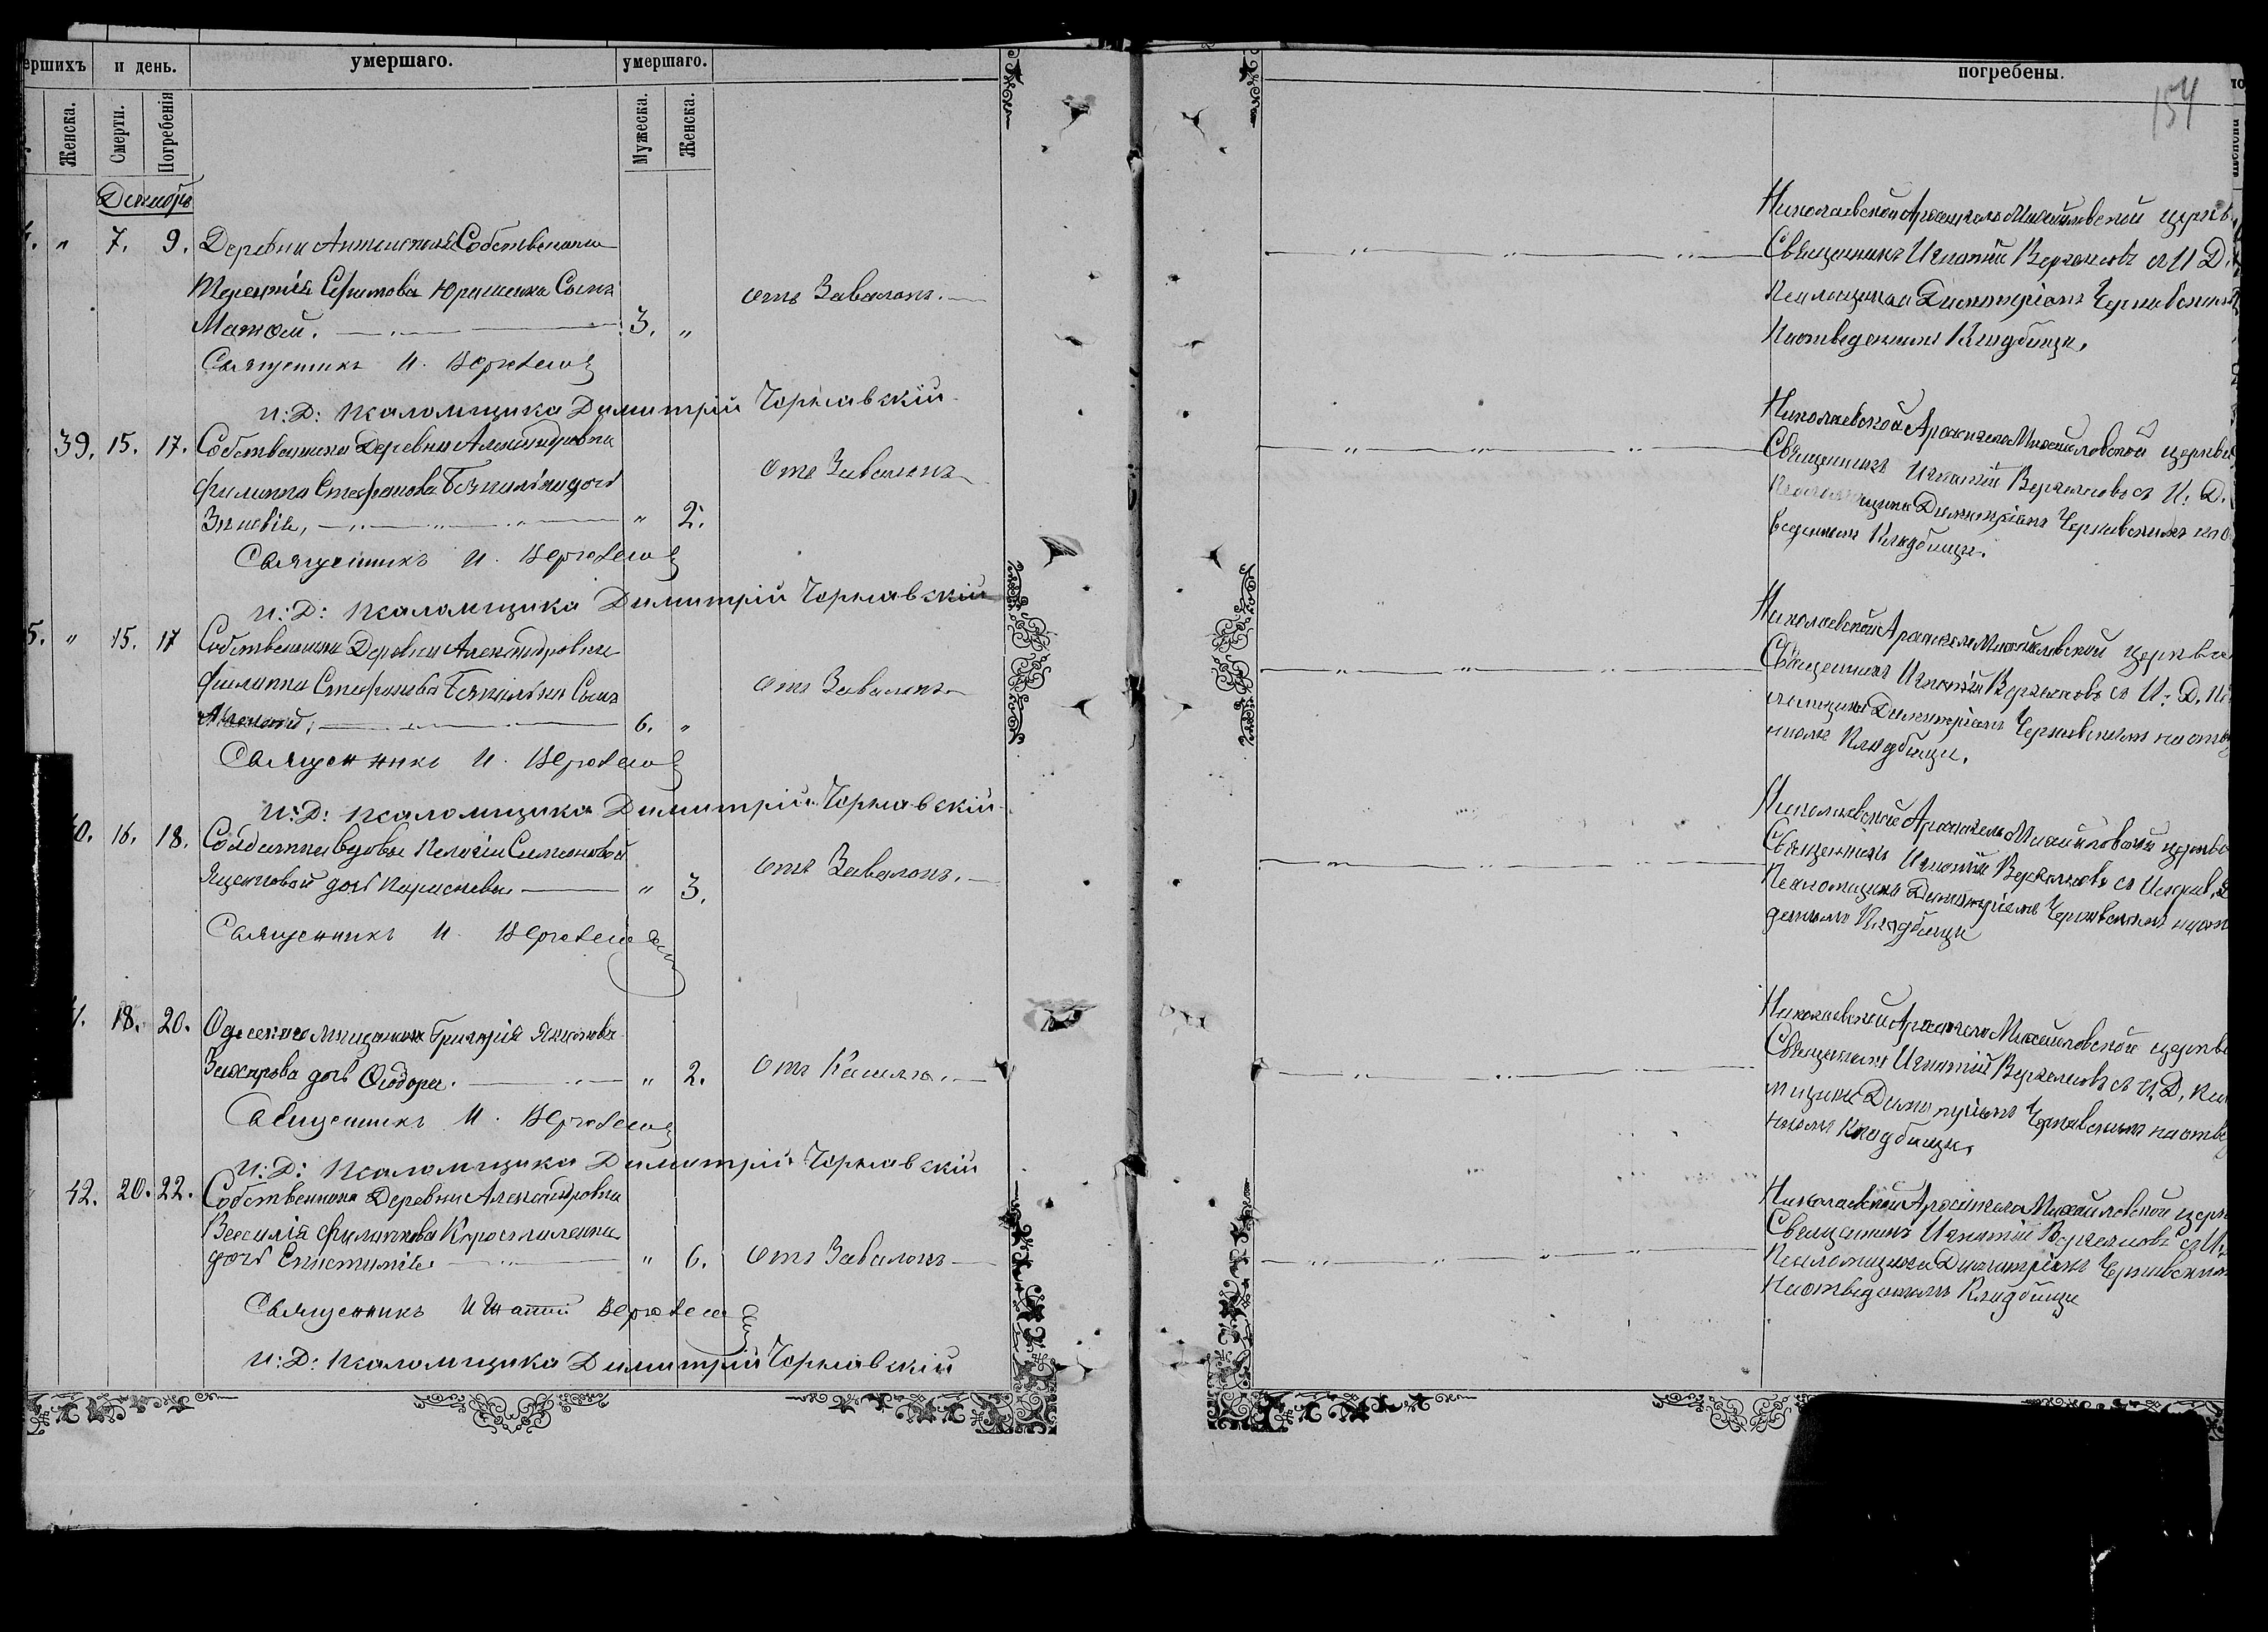 ершихъ и день. умершаго. умершаго.
Женска. Смерти. Погребенія Мужеска. Женска.
Декабрь
" 7. 9. Деревни Собственника
Терентія Ефимова Юрашенка Сынъ
3. " отъ Завалокъ.
Священникъ И.
И: Д: псаломщика Димитрій Чернавскій
39. 15. 17. Собственника Деревни Александровки
Филиппа Стефанова дочь
Зиновія, " 2. отъ Завалокъ
Священникъ И.
И: Д: псаломщика Димитрій Чернавскій
5. " 15. 17 Собственника Деревни Александровки
Филиппа Стефанова Сынъ
6. " отъ Завалокъ
Священникъ И.
И: Д: псаломщика Димитрій Чернавскій
0. 16. 18. Солдатки вдовы Пелагіи Симоновой
дочь Парасковья " 3. отъ Завалокъ.
Священникъ И.
18. 20. Григорія Яковлева
Захарова дочь Ѳеодора. " 2. отъ Кашлю.
Священникъ И.
И: Д: псаломщика Димитрій Чернавскій
42. 20. 22. Собственника Деревни Александровки
Василія Филиппова Коростиленка
дочь Евстимія " 6. отъ Завалокъ
Священникъ Игнатій
И: Д: псаломщика Димитрій Чернавскій
погребены.
154
Николаевской Архангело Михайловской церкв
Священникъ Игнатій съ И Д.
Псаломщика Димитріемъ Чернавскимъ
На отведенномъ Кладбищи.
Николаевской Архангело Михайловской церкви
Священникъ Игнатій съ И. Д.
Псаломщика Димитріемъ Чернавскимъ на о
веденномъ Кладбищи.
Николаевской Архангело Михайловской церкви
Священникъ Игнатій съ И. Д. Пс
аломщика Димитріемъ Чернавскимъ на отве
номъ Кладбищи.
Николаевской Архангело Михайловской церкв
Священникъ Игнатій съ
Псаломщика Димитріемъ Чернавскимъ на от
денномъ Кладбищи
Николаевской Архангело Михайловской церкви
Священникъ Игнатій съ И. Д.
мщика Димитріемъ Чернавскимъ на отве
номъ Кладбищи.
Николаевской Архангело Михайловской церк
Священникъ Игнатій съ И.
Псаломщика Димитріемъ Чернавскимъ
На отведенномъ Кладбищи